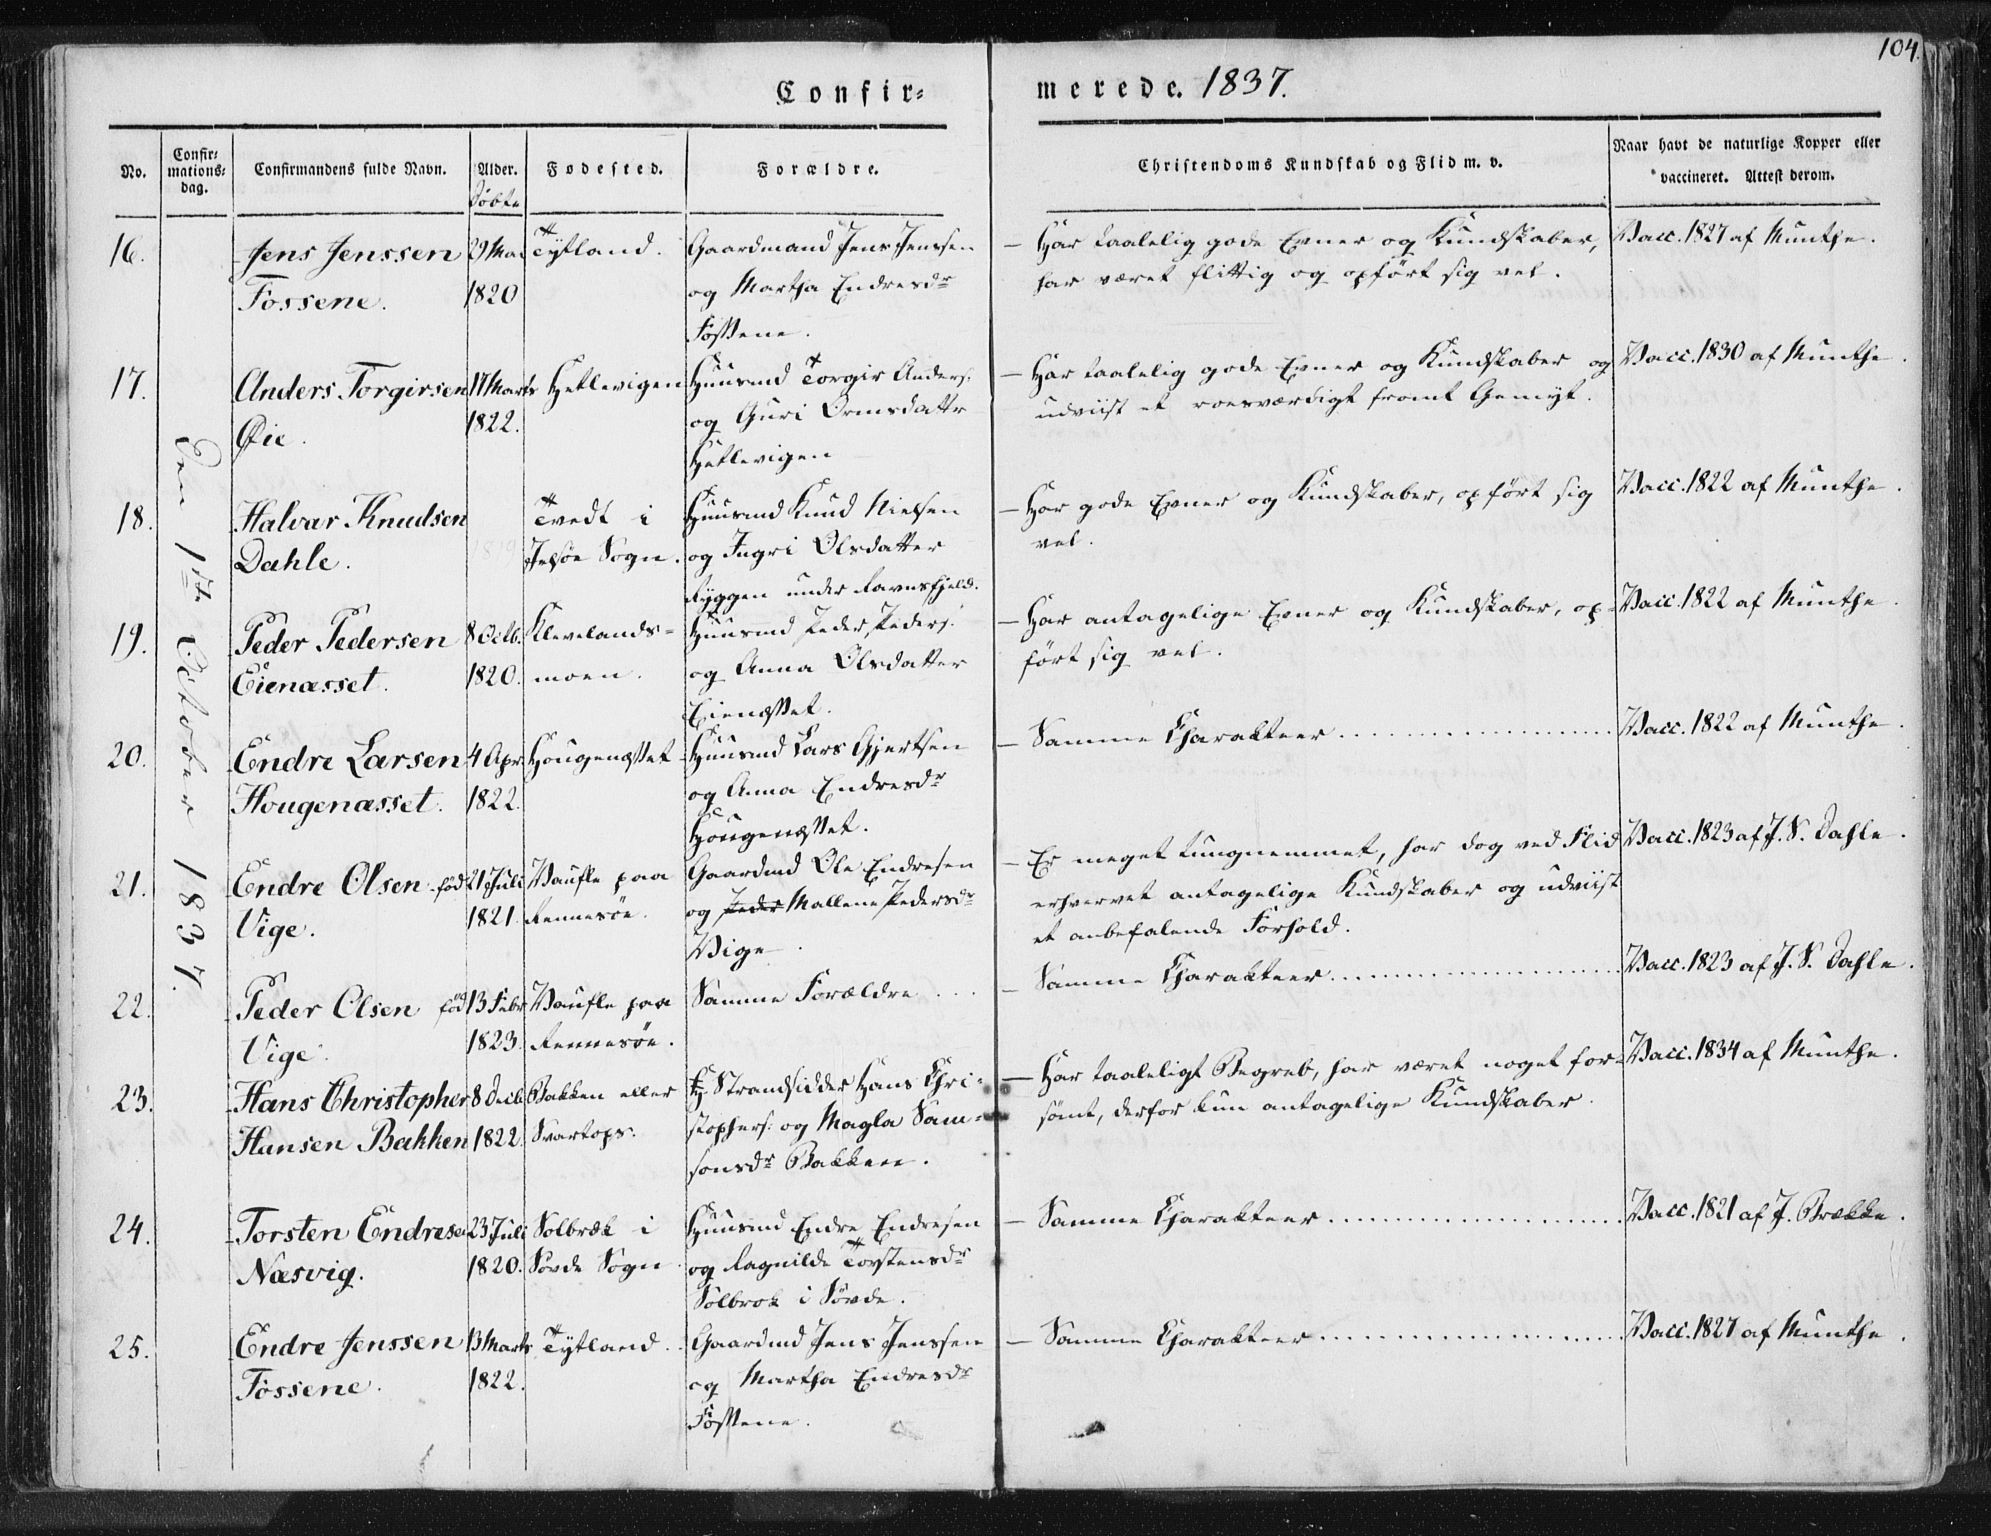 104.
Confir=
merede. 1837.
No.
Confir=
mations=
dag.
Confirmandens fulde Navn.
Alder.
Döbte
Fødested.
Forældre.
Christendoms Kundskab og Flid m. v.
Naar havt de naturlige Kopper eller
vaccineret. Attest derom.
Den 1ste October 1837.
16.
Jens Jenssen
Fossene.
29 Mai
1820
Tytland.
Gaardmand Jens Jenssen
og Martha Endresdr
Fossene.
– Har taalelig gode Evner og Kundskaber,
har været flittig og opført sig vel.
Vacc. 1827 af Munthe.
17.
Anders Torgirsen
Øie.
17 Marts
1822.
Hetlevigen
Huusmd Torgir Anders:
og Guri Ormsdattr
Hetlevigen
– Har taalelig gode Evner og Kundskaber og
udviist et roesværdigt fromt Gemyt.
Vacc. 1830 af Munthe.
18.
Halvar Knudsen
Dahle.
1819
Tvedt i
Jelsøe Sogn.
Huusmd Knud Nielsen
og Ingri Olsdatter
Ryggen under Ravnsfjeld.
– Har gode Evner og Kundskaber, opført sig
vel.
Vacc. 1822 af Munthe.
19.
Peder Pedersen
Eienæsset.
8 Octb.
1820.
Klevelands=
moen.
Huusmd Peder Peders:
og Anna Olsdatter
Eienæsset.
– Har antagelige Evner og Kundskaber, op=
ført sig vel.
Vacc. 1822 af Munthe.
20.
Endre Larsen
Hougenæsset.
4 Apr
1822.
Hougenæsset
Huusmd Lars Gjertsen
og Anna Endresdr
Hougenæsset.
– Samme Charakteer
Vacc. 1822 af Munthe.
21.
Endre Olsen
Vige.
fød 21 Juli
1821.
Vaufle paa
Rennesøe.
Gaardmd Ole Endresen
og Peder Mallene Pedersdr
Vige.
– Er meget tungnemmet, har dog ved Flid
erhvervet antagelige Kundskaber og udviist
et anbefalende Forhold.
Vacc. 1823 af J. S. Dahle.
22.
Peder Olsen
Vige.
fød 13 Febr
1823.
Vaufle paa
Rennesøe.
Samme Forældre
– Samme Charakteer
Vacc. 1823 af J. S. Dahle.
23.
Hans Christopher
Hansen Bakken
8 Decb.
1822.
Bakken eller
Svartops.
Strandsidder Hans Chri=
stophers: og Magla Sam=
sonsdr Bakken.
– Har taaleligt Begreb, har været noget for=
sømt, derfor kun antagelige Kundskaber.
Vacc. 1834 af Munthe.
24.
Torsten Endresen
Næsvig.
23 Juli
1820.
Solbræk i
Søvde Sogn
Huusmd Endre Endresen
og Ragnilde Torstensdr
Solbrok i Søvde.
– Samme Charakteer
Vacc. 1821 af J. Brække.
25.
Endre Jenssen
Fossene.
13 Marts
1822.
Tytland.
Gaardmd Jens Jenssen
og Martha Endresdr
Fossene.
– Samme Charakteer
Vacc. 1827 af Munthe.